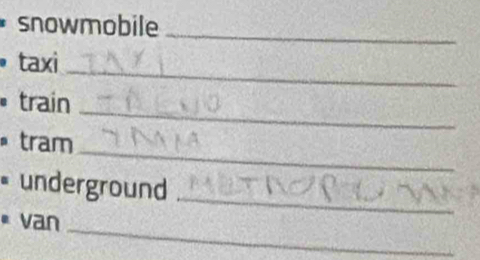 snowmobile
taxi TAXI
train TRENO
tram
underground
van